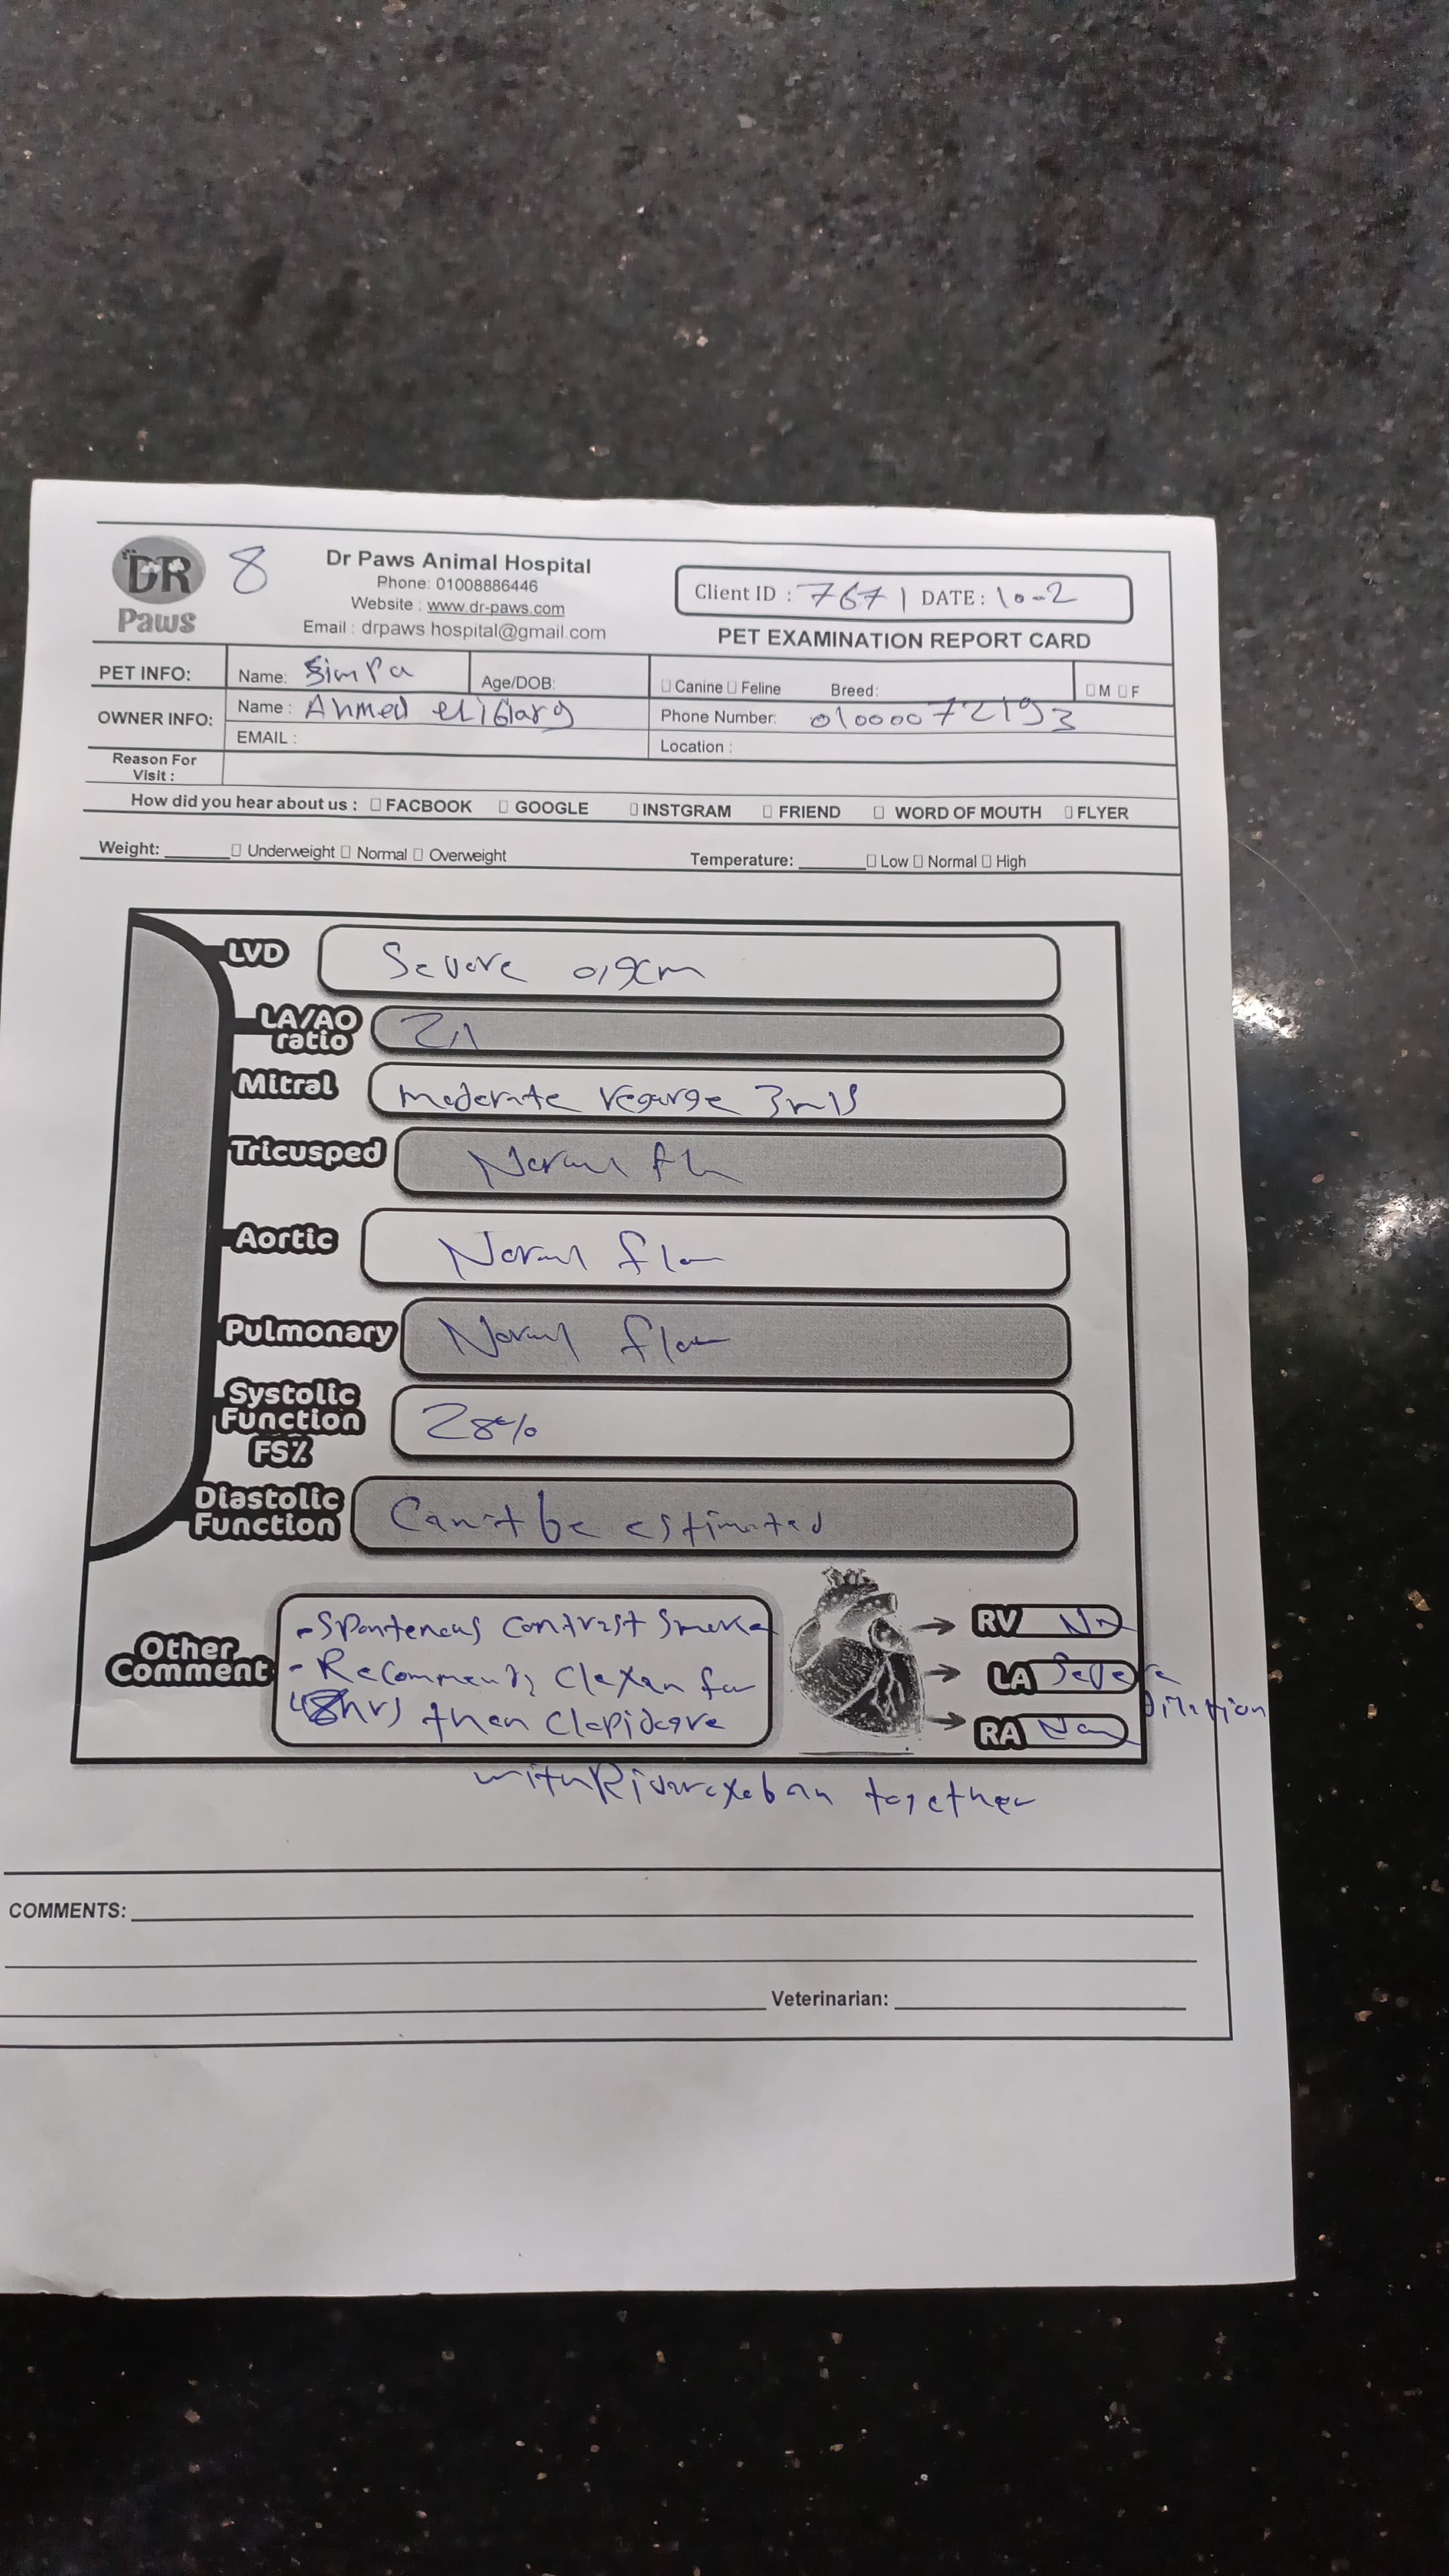 DR
Paws
8
Dr Paws Animal Hospital
Phone: 01008886446
Website : www.dr-paws.com
Email : drpaws.hospital@gmail.com
Client ID : 7671 DATE : 10-2
PET EXAMINATION REPORT CARD
PET INFO: Name: Simpa Age/DOB: Canine Feline Breed: M F
OWNER INFO: Name : Ahmed Phone Number: 01000072193
EMAIL : Location :
Reason For
Visit :
How did you hear about us : FACBOOK GOOGLE INSTGRAM FRIEND WORD OF MOUTH FLYER
Weight: Underweight Normal Overweight Temperature: Low Normal High
LVD Severe 0,9cm
LA/AO
ratio
Mitral moderate regurge 3m/s
Tricusped Normal
Aortic Normal flow
Pulmonary Normal flow
Systolic
Function
FS%
28%
Diastolic
Function
Can't be estimated
Other
Comment
- Spontenous contrast smoke
- Recommend, Clexan for
48hrs then Clopidogre
with Rivaroxaban together
RV
LA Severe
Dilation
RA
COMMENTS:
Veterinarian: